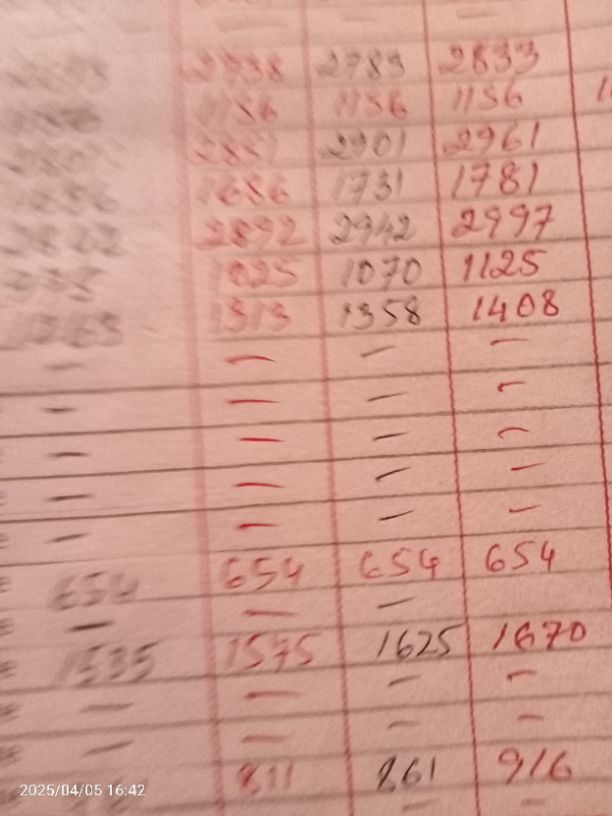 2738 2783 2833
1156 1156 1156
2851 2901 2961
1686 1731 1781
2892 2942 2997
1025 1070 1125
1313 1358 1408
— — — —
— — — —
— — — —
— — — —
— — — —
654 654 654 654
— — —
1535 1575 1625 1670
— — — —
— — — —
811 861 916
— —
2025/04/05 16:42